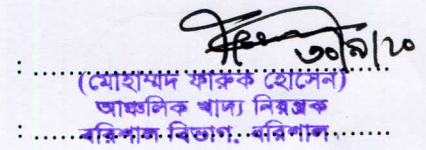 ৩০/৯/২০
: ..................
(মোহাম্মদ ফারুক হোসেন)
আঞ্চলিক খাদ্য নিয়ন্ত্রক
: বরিশাল বিভাগ, বরিশাল.